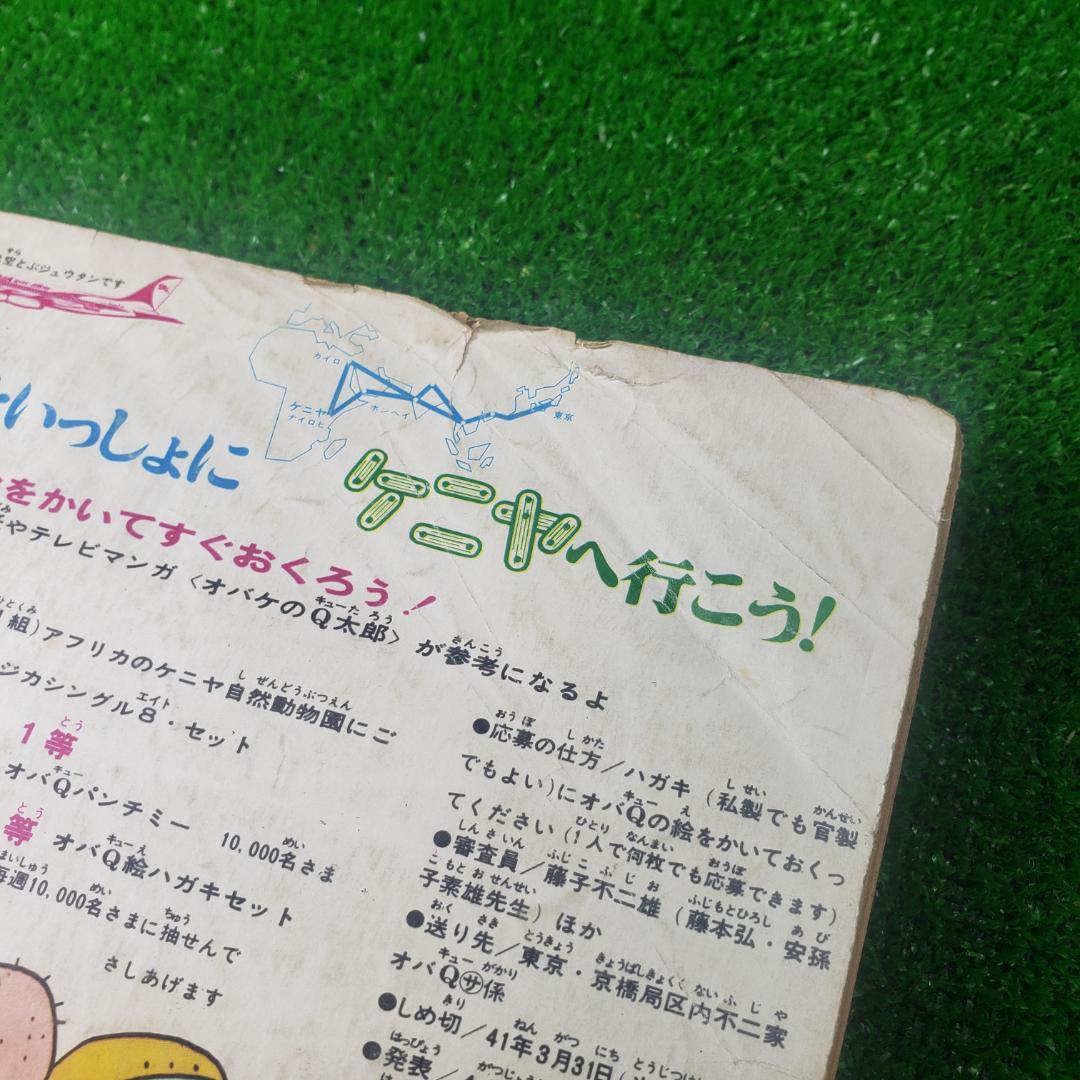 空とぶジュウタンです
カイロ
ケニヤ
ナイロビ
ボンベイ
東京
いっしょに
ケニヤへ行こう!
をかいてすぐおくろう!
やテレビマンガ〈オバケのQ太郎〉が参考になるよ
組)アフリカのケニヤ自然動物園にご
ジカシングル8・セット
1等
オバQパンチミー 10,000名さま
等 オバQ絵ハガキセット
毎週10,000名さまに抽せんで
さしあげます
●応募の仕方/ハガキ(私製でも官製
でもよい)にオバQの絵をかいておくっ
てください(1人で何枚でも応募できます)
●審査員/藤子不二雄(藤本弘・安孫
子素雄先生)ほか
●送り先/東京・京橋局区内不二家
オバQ㋚係
●しめ切/41年3月31日
●発表/